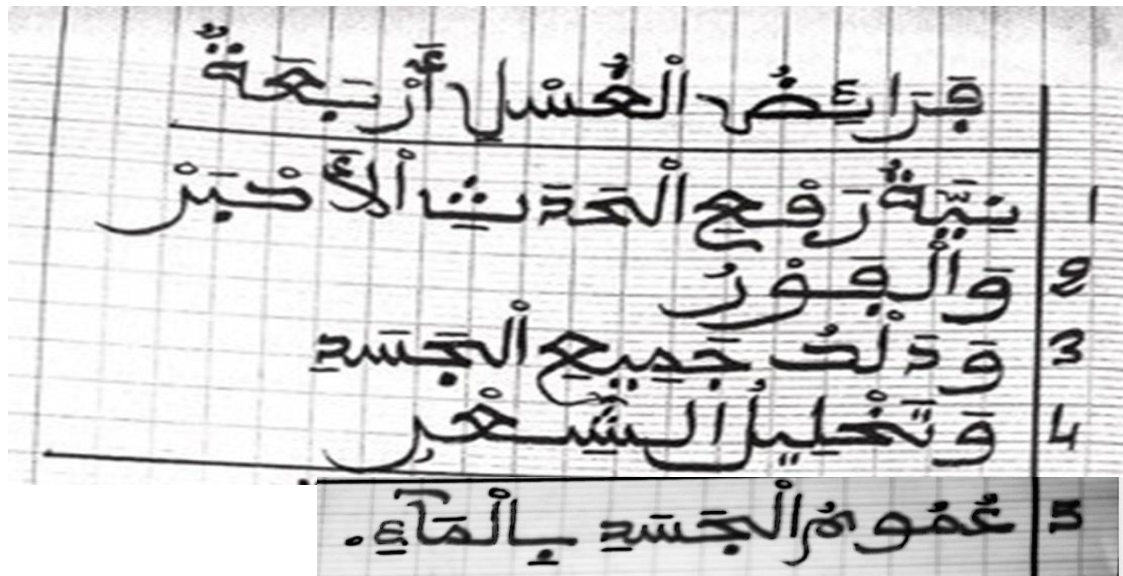 فَرَائِضُ الْغُسْلِ أَرْبَعَةٌ
1 نِيَّةُ رَفْعِ الْحَدَثِ الْأَكْبَرْ
2 وَالْفَوْرُ
3 وَدَلْكُ جَمِيعِ الْجَسَدِ
4 وَتَخْلِيلُ الشَّعْرِ
5 عُمُومُ الْجَسَدِ بِالْمَآءِ.